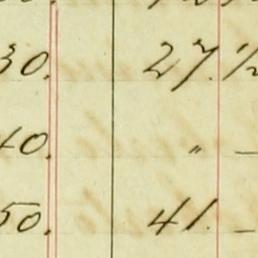 30. 27. ½
40. " —
50. 41. —